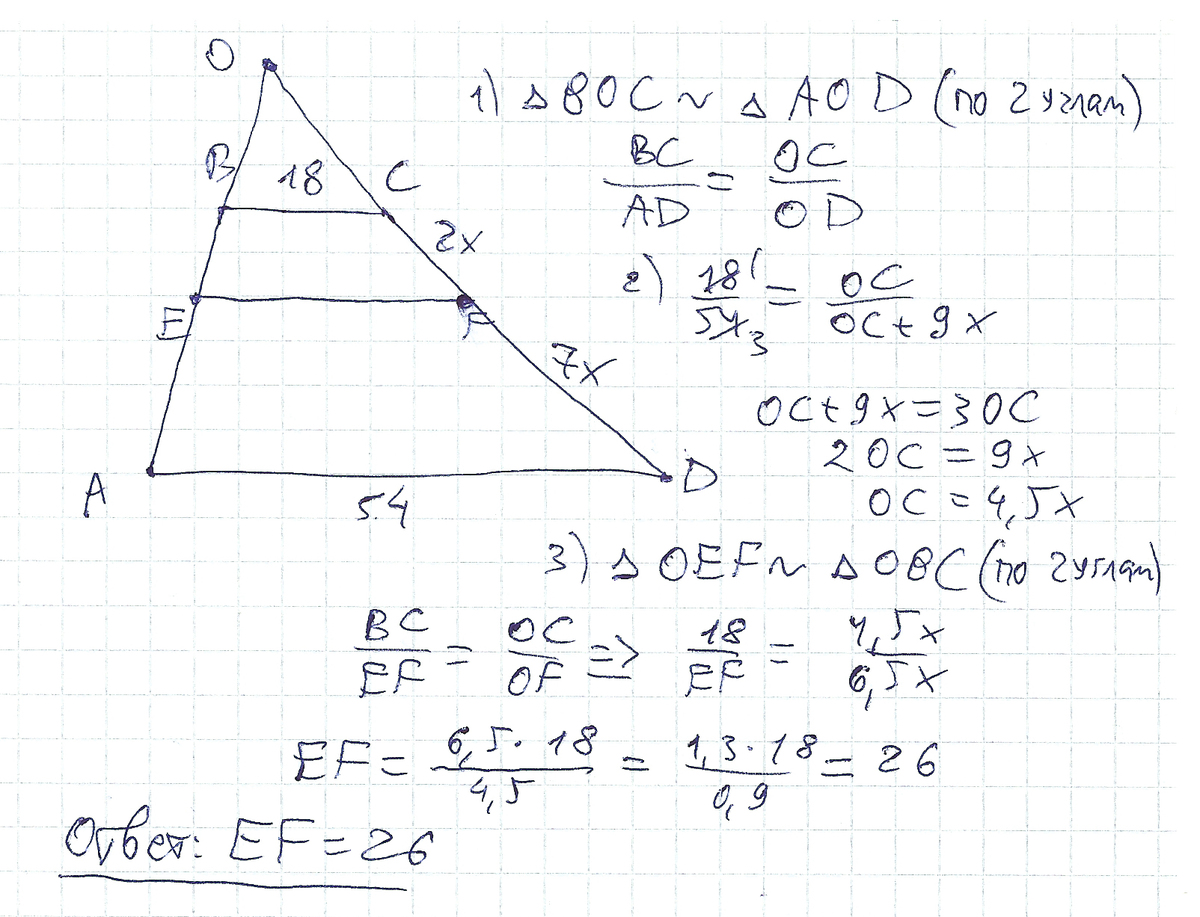 O
B 18 C
2x
E F
7x
A 54 D
1) △ BOC ~ △ AOD (по 2 углам)
BC/AD = OC/OD
2) 18 1/54 3 = OC/OC + 9x
OC + 9x = 3OC
2OC = 9x
OC = 4,5x
3) △ OEF ~ △ OBC (по 2 углам)
BC/EF = OC/OF => 18/EF = 4,5x/6,5x
EF = 6,5 · 18/4,5 = 1,3 · 18/0,9 = 26
Ответ: EF = 26